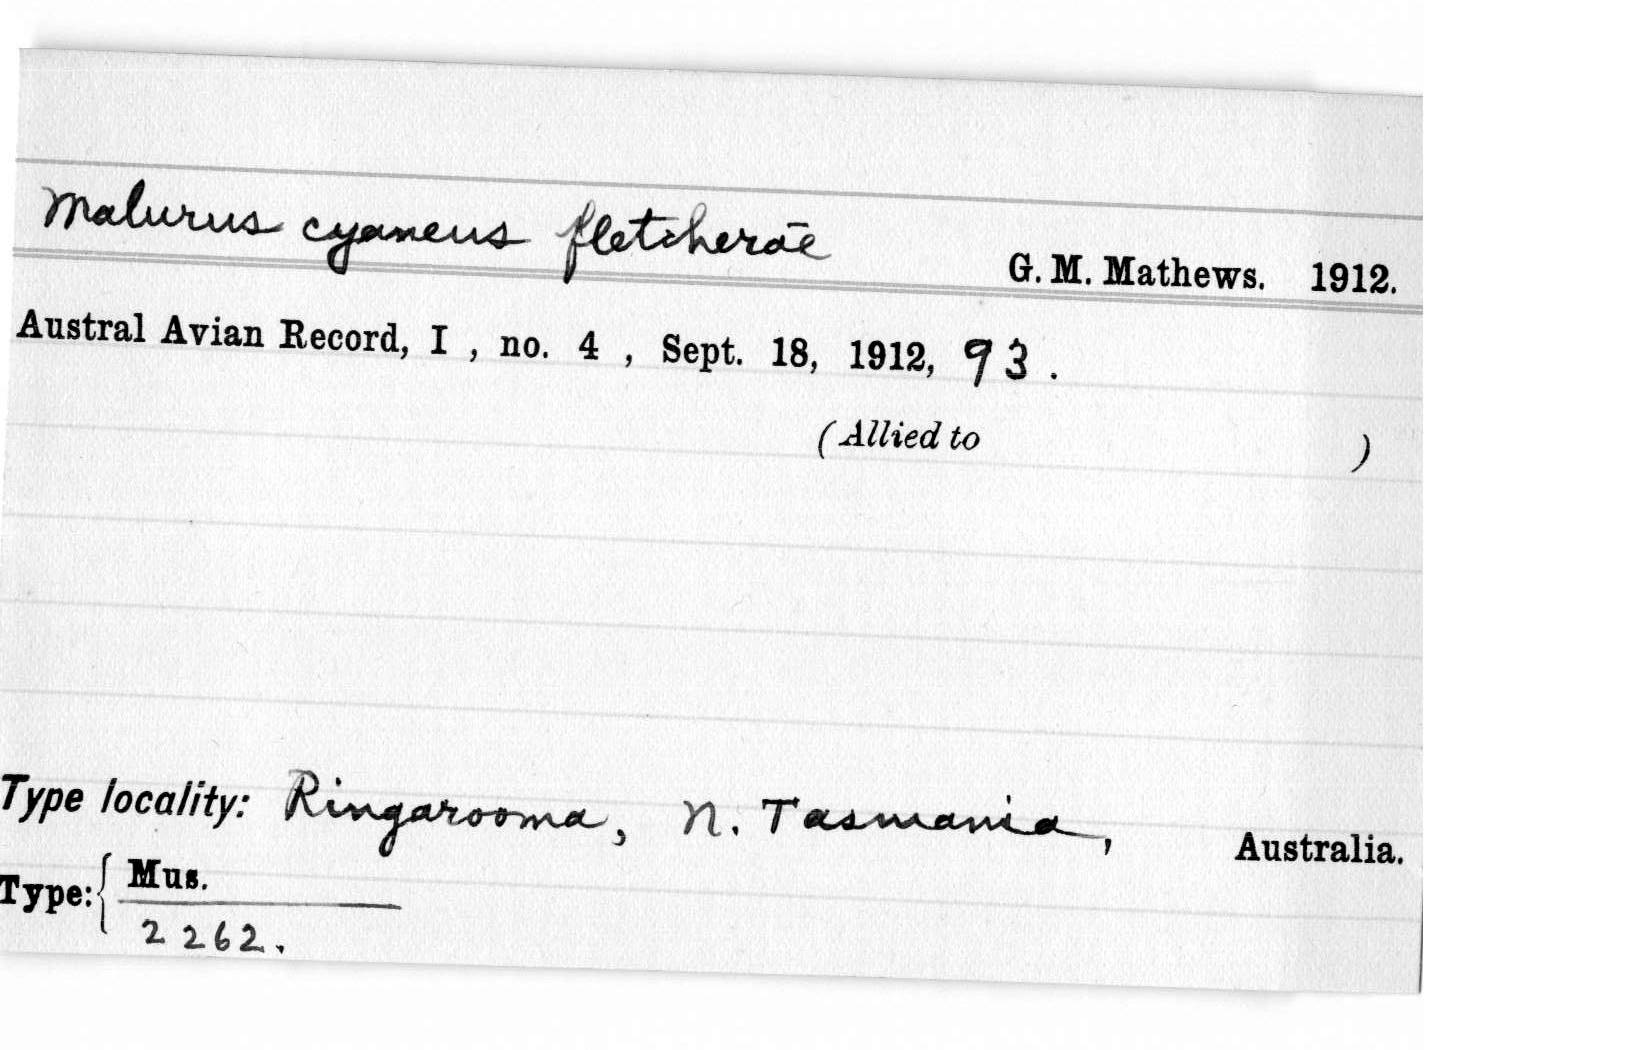 Malurus cyaneus fletcherae G. M. Mathews. 1912.
Austral Avian Record, I , no. 4 , Sept. 18, 1912, 93 .
(Allied to )
Type locality: Ringarooma, N. Tasmania, Australia.
Type: { Mus.
2262.